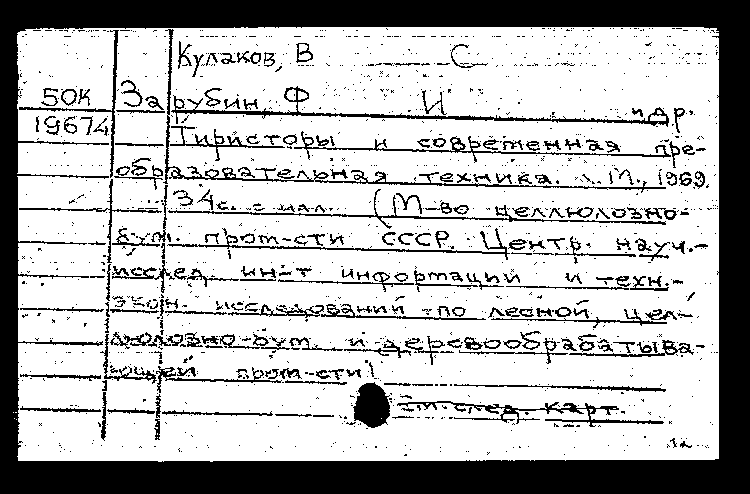 Кулаков, В С
50К Зарубин, Ф И и др.
19674 Тиристоры и современная пре-
образовательная техника. М., 1969.
34с. с илл. (М-во целлюлозно-
бум. пром-сти СССР. Центр. науч.-
исслед. ин-т информации и техн.-
экон. исследований по лесной, цел-
люлозно-бум. и деревообрабатыва-
ющей пром-сти)
См. след. карт.